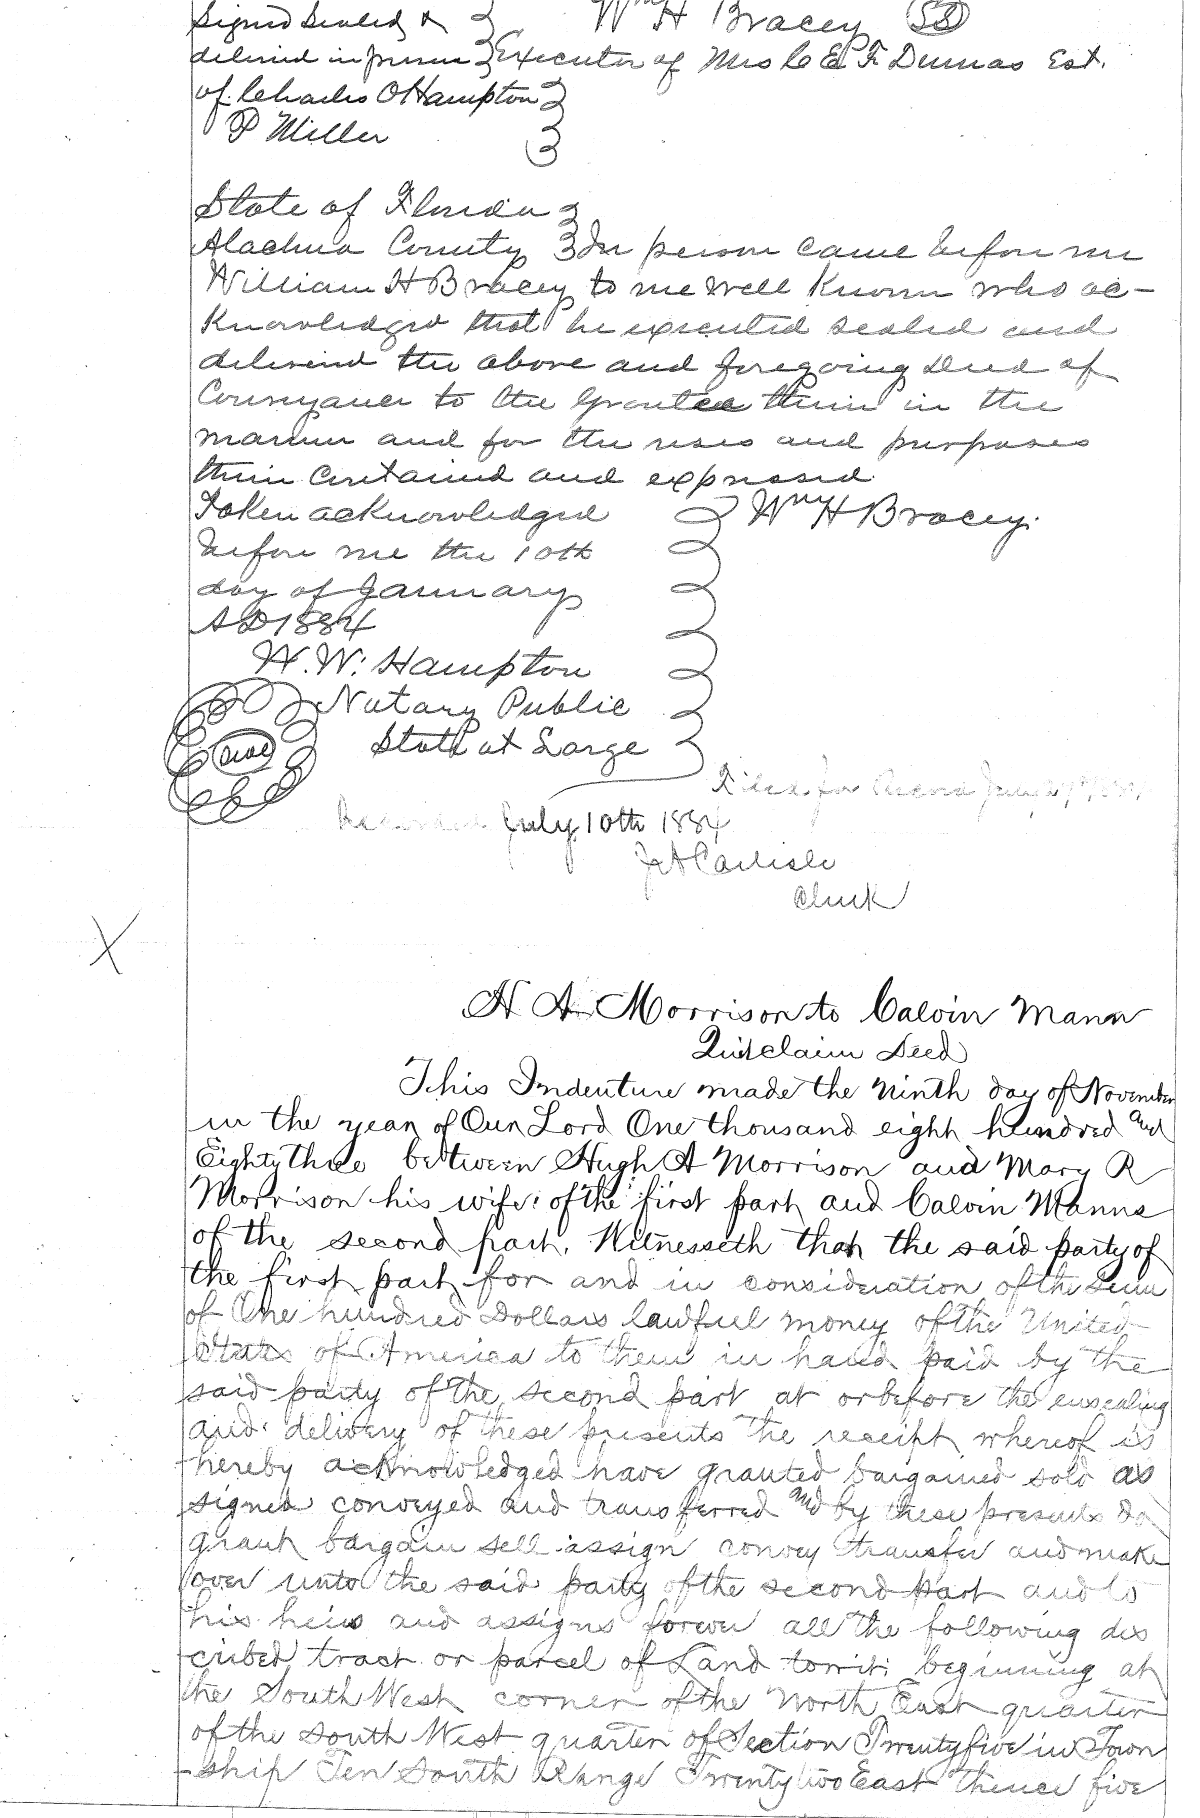 Signed Sealed & Wm H Bracey SS
delivered in presence Executor of Mrs C E F Dumas Est.
of Charles O Hampton
P Miller
State of Florida
Alachua County In person came before me
William H Bracey to me well known who ac-
knowledged that he executed sealed and
delivered the above and foregoing Deed of
Conveyance to the Grantee therein in the
manner and for the uses and purposes
therein contained and expressed.
Taken acknowledged Wm H Bracey.
before me the 10th
day of January
AD 1884
H. W. Hampton
Notary Public
State at Large
seal
Filed for Record
Recorded July 10th 1884
J A Carlisle
Clerk
X
H A Morrison to Calvin Mann
Quitclaim Deed
This Indenture made the Ninth day of November
in the year of Our Lord One thousand eight hundred and
Eighty three between Hugh A Morrison and Mary R
Morrison his wife of the first part and Calvin Manns
of the second part, Witnesseth that the said party of
the first part for and in consideration of the Sum
of One hundred Dollars lawful money of the United
States of America to them in hand paid by the
said party of the second part at or before the ensealing
and delivery of these presents the receipt whereof is
hereby acknowledged have granted bargained sold as
signed conveyed and transferred and by these presents do
grant bargain sell assign convey transfer and make
over unto the said party of the second part and to
his heirs and assigns forever all the following des
cribed tract or parcel of Land towit: beginning at
the South West corner of the North East quarter
of the South West quarter of Section Twenty five in Town
ship Ten South Range Twenty two East thence five